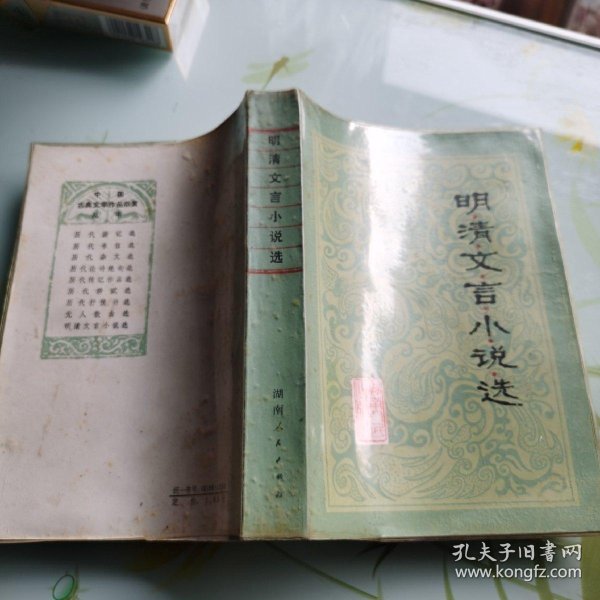 明清文言小说选
明清文言小说选
湖南人民出版社
中国
古典文学作品选读
丛书
历代游记选
历代书信选
历代杂文选
历代论诗绝句选
历代传记作品选
历代辞赋选
历代抒情诗选
元人散曲选
明清文言小说选
统一书号
定价
孔夫子旧书网
www.kongfz.com